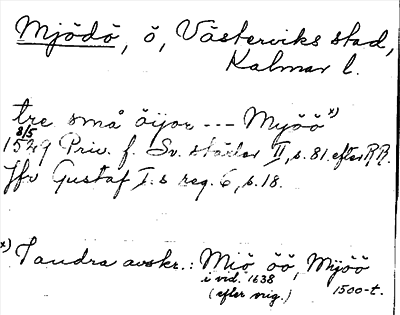 Mjödö, ö, Västerviks stad,
Kalmar l.
tre små öijor --- Myöö x)
8/5
1549 Priv. f. Sv. städer II, s. 81. efter R.R.
Jfr Gustaf I.s reg. 6, s. 18.
x) I andra avskr.: Miö öö, Mijöö
i vid. 1638 1500-t.
(efter orig.)